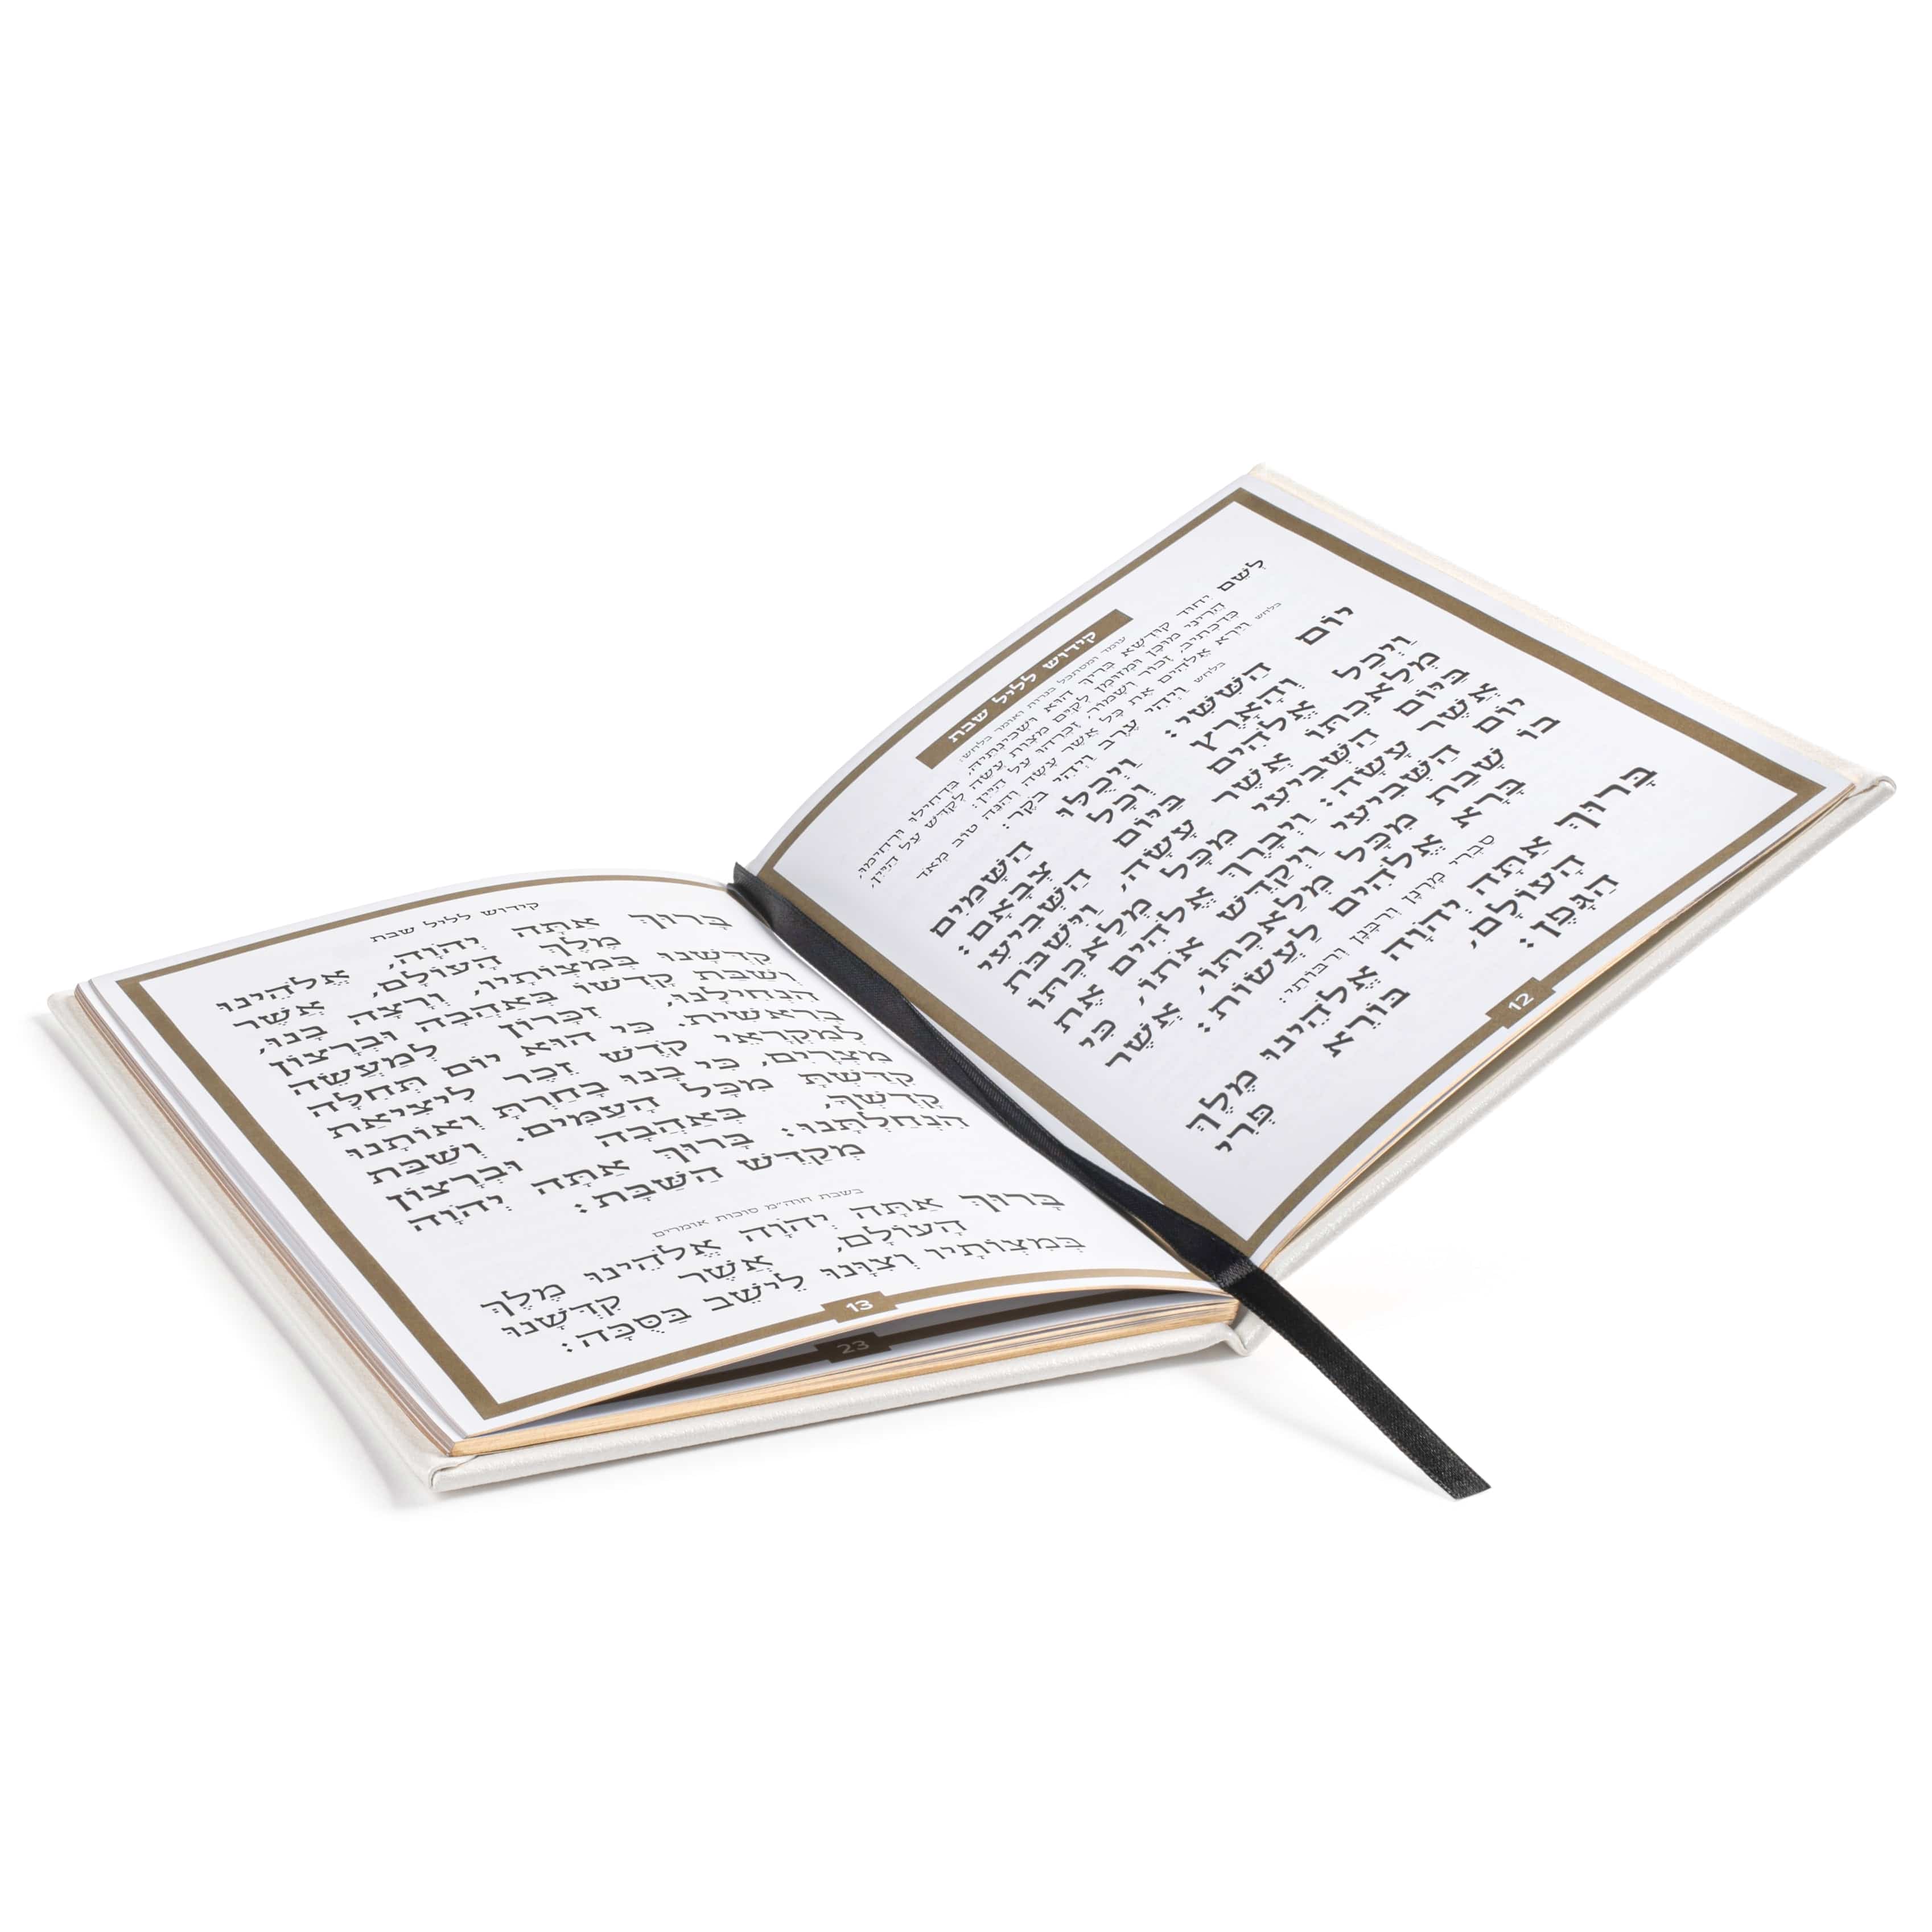 קידוש לליל שבת
עומד ומסתכל בנרות ואומר בלחש:
לְשֵׁם יִחוּד קוּדְשָׁא בְּרִיךְ הוּא וּשְׁכִינְתֵּיהּ, בִּדְחִילוּ וּרְחִימוּ,
הֲרֵינִי מוּכָן וּמְזוּמָן לְקַיֵּם מִצְוַת עֲשֵׂה לְקַדֵּשׁ עַל הַיַּיִן,
כְּדִכְתִיב, זָכוֹר וְשָׁמוֹר, זָכְרֵהוּ עַל הַיַּיִן:
בלחש וַיַּרְא אֱלֹהִים אֶת כָּל אֲשֶׁר עָשָׂה וְהִנֵּה טוֹב מְאֹד
בלחש וַיְהִי עֶרֶב וַיְהִי בֹקֶר:
יוֹם הַשִּׁשִּׁי: וַיְכֻלּוּ הַשָּׁמַיִם
וְהָאָרֶץ וְכָל צְבָאָם:
וַיְכַל אֱלֹהִים בַּיּוֹם הַשְּׁבִיעִי
מְלַאכְתּוֹ אֲשֶׁר עָשָׂה, וַיִּשְׁבֹּת
בַּיּוֹם הַשְּׁבִיעִי מִכָּל מְלַאכְתּוֹ
אֲשֶׁר עָשָׂה: וַיְבָרֶךְ אֱלֹהִים אֶת
יוֹם הַשְּׁבִיעִי וַיְקַדֵּשׁ אֹתוֹ, כִּי
בוֹ שָׁבַת מִכָּל מְלַאכְתּוֹ, אֲשֶׁר
בָּרָא אֱלֹהִים לַעֲשׂוֹת:
סַבְרִי מָרָנָן וְרַבָּנָן וְרַבּוֹתַי:
בָּרוּךְ אַתָּה יְהֹוָה אֱלֹהֵינוּ מֶלֶךְ
הָעוֹלָם, בּוֹרֵא פְּרִי
הַגָּפֶן:
12
קידוש לליל שבת
בָּרוּךְ אַתָּה יְהֹוָה, אֱלֹהֵינוּ
מֶלֶךְ הָעוֹלָם, אֲשֶׁר
קִדְּשָׁנוּ בְּמִצְוֹתָיו, וְרָצָה בָנוּ,
וְשַׁבַּת קָדְשׁוֹ בְּאַהֲבָה וּבְרָצוֹן
הִנְחִילָנוּ, זִכָּרוֹן לְמַעֲשֵׂה
בְרֵאשִׁית. כִּי הוּא יוֹם תְּחִלָּה
לְמִקְרָאֵי קֹדֶשׁ זֵכֶר לִיצִיאַת
מִצְרָיִם, כִּי בָנוּ בָחַרְתָּ וְאוֹתָנוּ
קִדַּשְׁתָּ מִכָּל הָעַמִּים. וְשַׁבַּת
קָדְשְׁךָ, בְּאַהֲבָה וּבְרָצוֹן
הִנְחַלְתָּנוּ: בָּרוּךְ אַתָּה יְהֹוָה
מְקַדֵּשׁ הַשַּׁבָּת:
בשבת חוה״מ סוכות אומרים
בָּרוּךְ אַתָּה יְהֹוָה אֱלֹהֵינוּ מֶלֶךְ
הָעוֹלָם, אֲשֶׁר קִדְּשָׁנוּ
בְּמִצְוֹתָיו וְצִוָּנוּ לֵישֵׁב בַּסֻּכָּה:
13
23